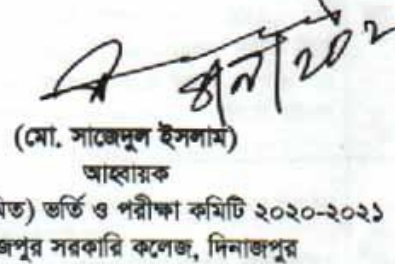 (মো. সাজেদুল ইসলাম)
আহবায়ক
ভর্তি ও পরীক্ষা কমিটি ২০২০-২০২১
সরকারি কলেজ, দিনাজপুর